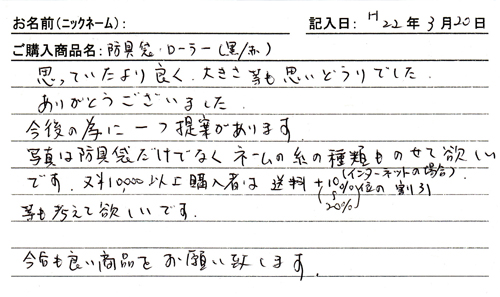 お名前(ニックネーム): 記入日: H22年3月20日
ご購入商品名: 防具袋・ローラー(黒/赤)
思っていたより良く、大きさ等も思いどうりでした。
ありがとうございました。
今後の為に一つ提案があります。
写真は防具袋だけでなくネームの糸の種類ものせて欲しい
です。又¥10,000以上購入者は送料+10%位の割引
(インターネットの場合)
(〜20%)
等も考えて欲しいです。
今后も良い商品をお願い致します。